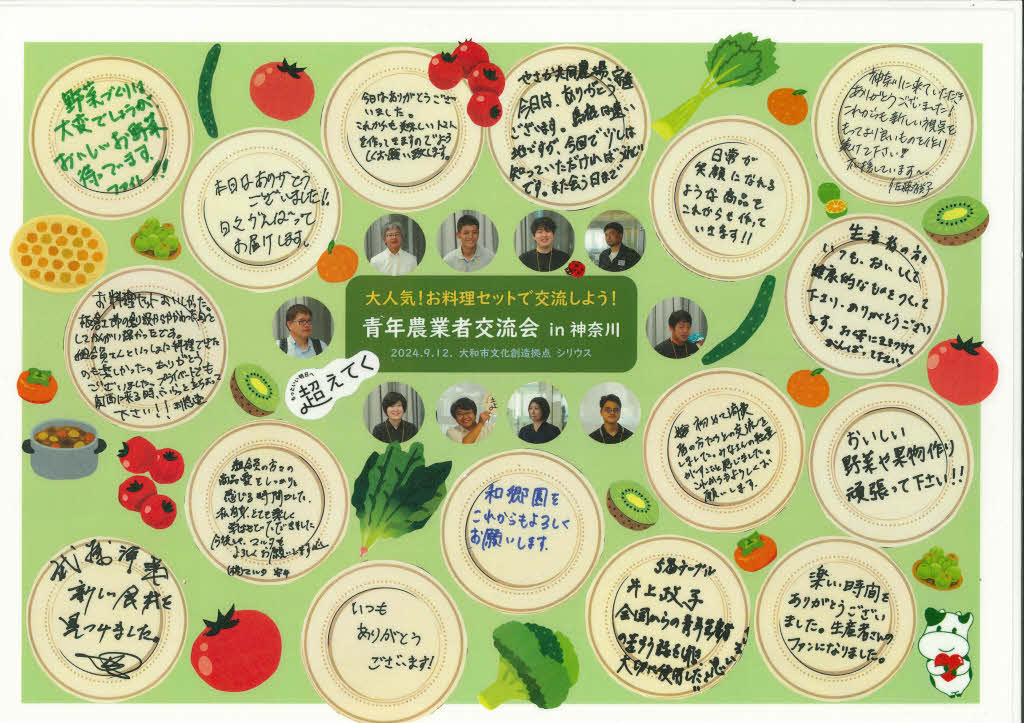 野菜づくりは
大変でしょうが
おいしいお野菜
待ってます。
ファイト!!
本日はありがとう
ございました!!
日々がんばって
お届けします。
今日はありがとうござ
いました。
これからも美味しいにんじん
を作ってきますのでよろ
しくお願い致します。
やさか共同農場
今日は、ありがとう
ございます。島根は遠い
地ですが、今回で少しは
知っていただければうれしい
です。また会う日まで
日常が
笑顔になれる
ような商品を
これからも作って
いきます!!
神奈川に来ていただき
ありがとうございました!
これからも新しい視点を
もってより良いものを作り
続けて下さい!!!
応援しています〜。
生産者の方を
いつも、おいしくて
健康的なものをつくって
下さり、ありがとうござい
ます。お体に気をつけて
がんばって下さい。
大人気!お料理セットで交流しよう!
青年農業者交流会 in 神奈川
2024.9.12. 大和市文化創造拠点 シリウス
超えてく
お料理セットおいしかった。
のも楽しかったのありがとう
ございました。プライベートでも
下さい!!
組合員の方々の
商品愛をしっかりと
感じる時間でした。
私自身、とても楽しく
過ごせていただきました
今後とも、マルタを
よろしくお願いします
(株)マルタ
和郷園を
これからもよろしく
お願いします。
初めて消費
者の方たちとの交流を
しました。みなさんの熱量
がすごいと感じました。
これからもよろしくお
願いします。
おいしい
野菜や果物作り
頑張って下さい!!
新しい食材を
見つけました。
いつも
ありがとう
ございます!
5番テーブル
井上政子
全国からの青年生産者
大切に使用したいと思います
楽しい時間を
ありがとうござい
ました。生産者さんの
ファンになりました。